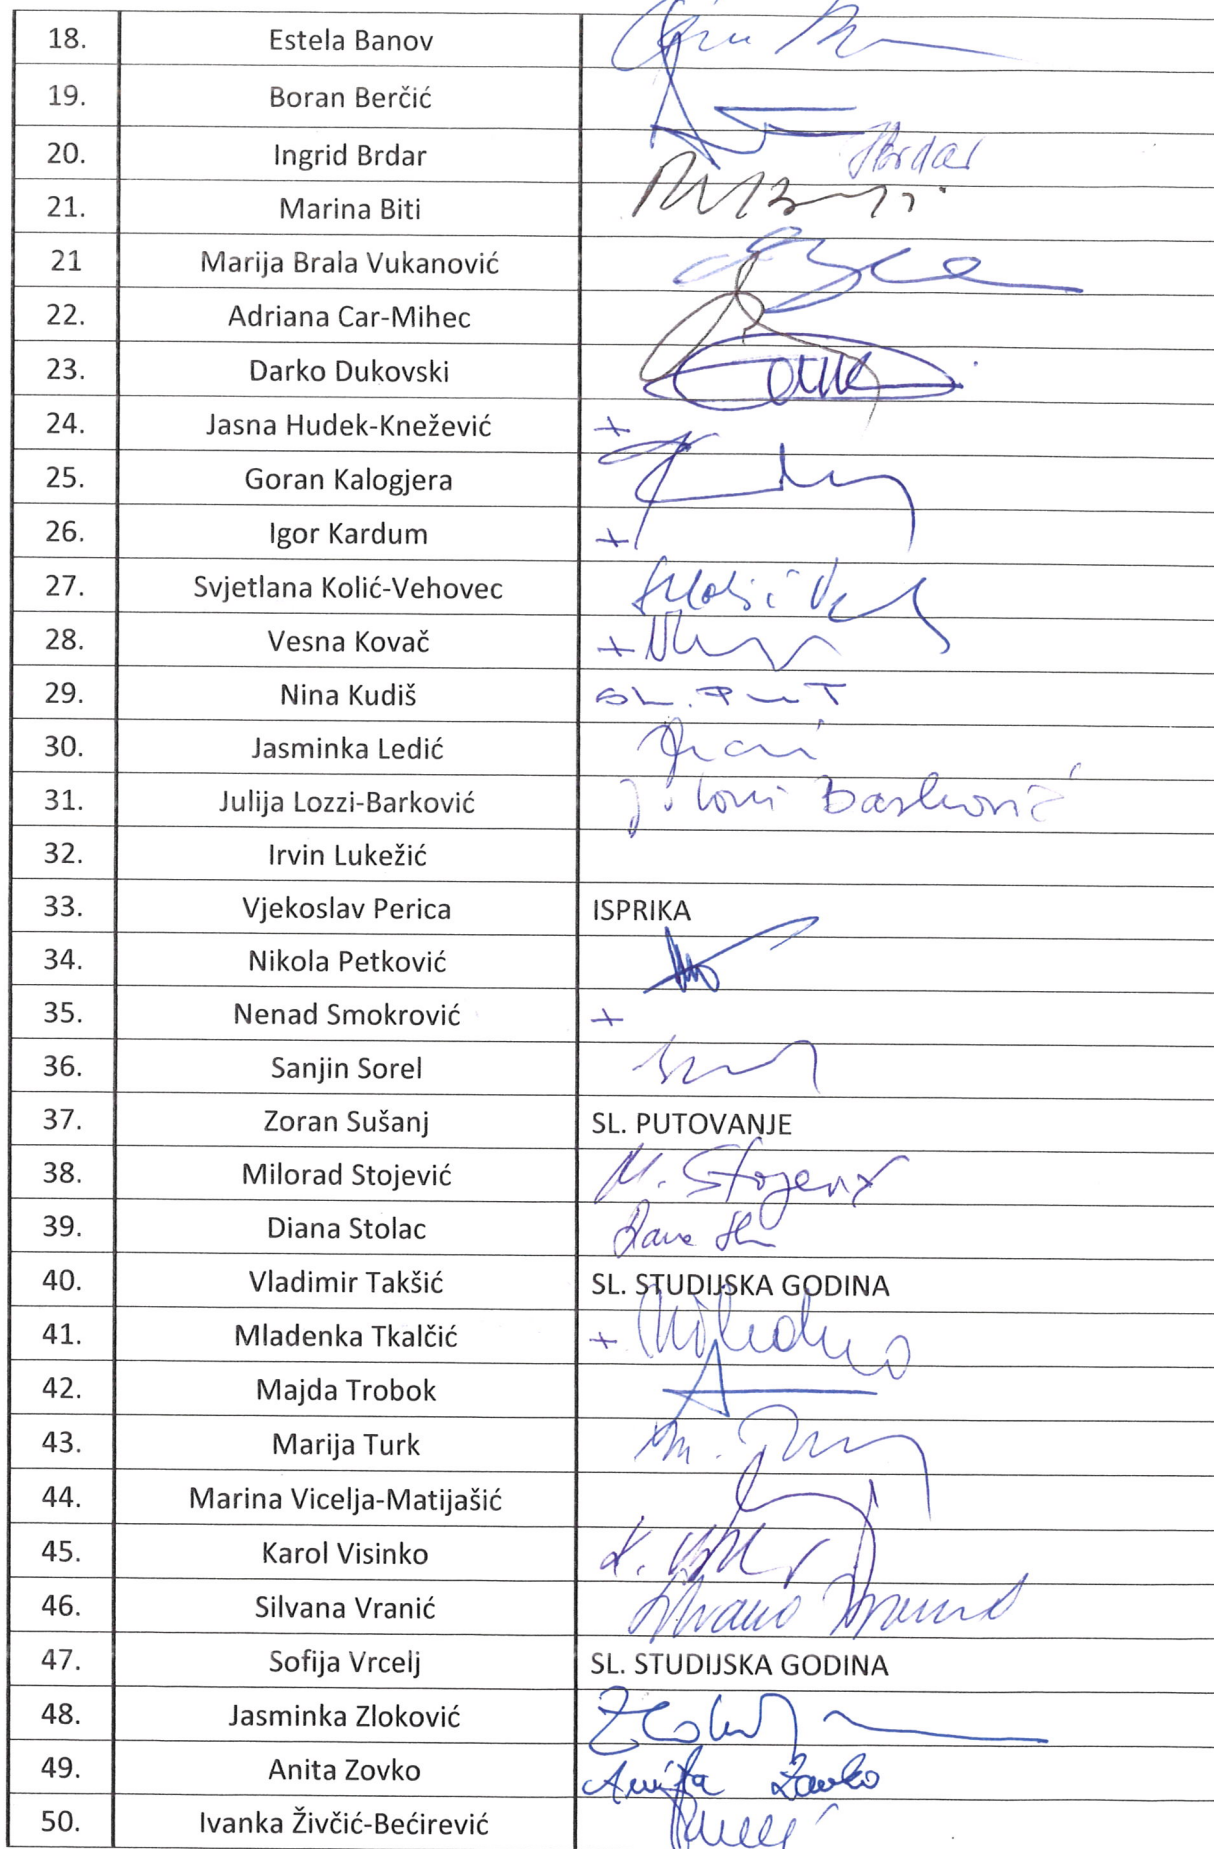 18. Estela Banov
19. Boran Berčić
20. Ingrid Brdar Brdar
21. Marina Biti
21 Marija Brala Vukanović
22. Adriana Car-Mihec
23. Darko Dukovski
24. Jasna Hudek-Knežević +
25. Goran Kalogjera
26. Igor Kardum +
27. Svjetlana Kolić-Vehovec
28. Vesna Kovač +
29. Nina Kudiš SL. PUT
30. Jasminka Ledić
31. Julija Lozzi-Barković
32. Irvin Lukežić
33. Vjekoslav Perica ISPRIKA
34. Nikola Petković
35. Nenad Smokrović +
36. Sanjin Sorel
37. Zoran Sušanj SL. PUTOVANJE
38. Milorad Stojević M. Stojević
39. Diana Stolac
40. Vladimir Takšić SL. STUDIJSKA GODINA
41. Mladenka Tkalčić +
42. Majda Trobok
43. Marija Turk
44. Marina Vicelja-Matijašić
45. Karol Visinko
46. Silvana Vranić
47. Sofija Vrcelj SL. STUDIJSKA GODINA
48. Jasminka Zloković
49. Anita Zovko Anita Zovko
50. Ivanka Živčić-Bećirević